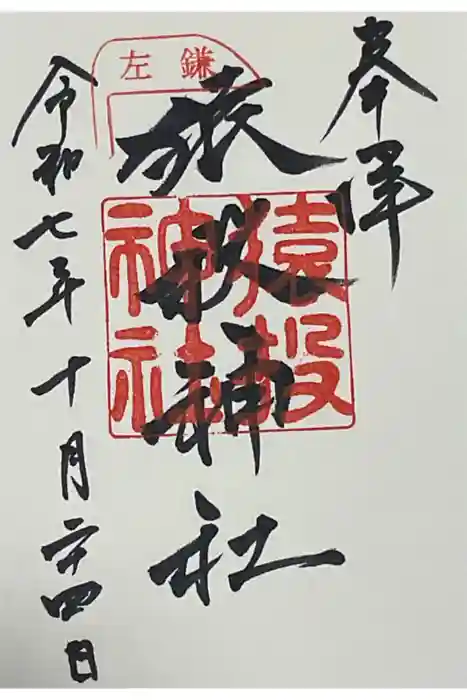 奉拝
左鎌
猿投神社
猿投神社
令和七年十月二十四日